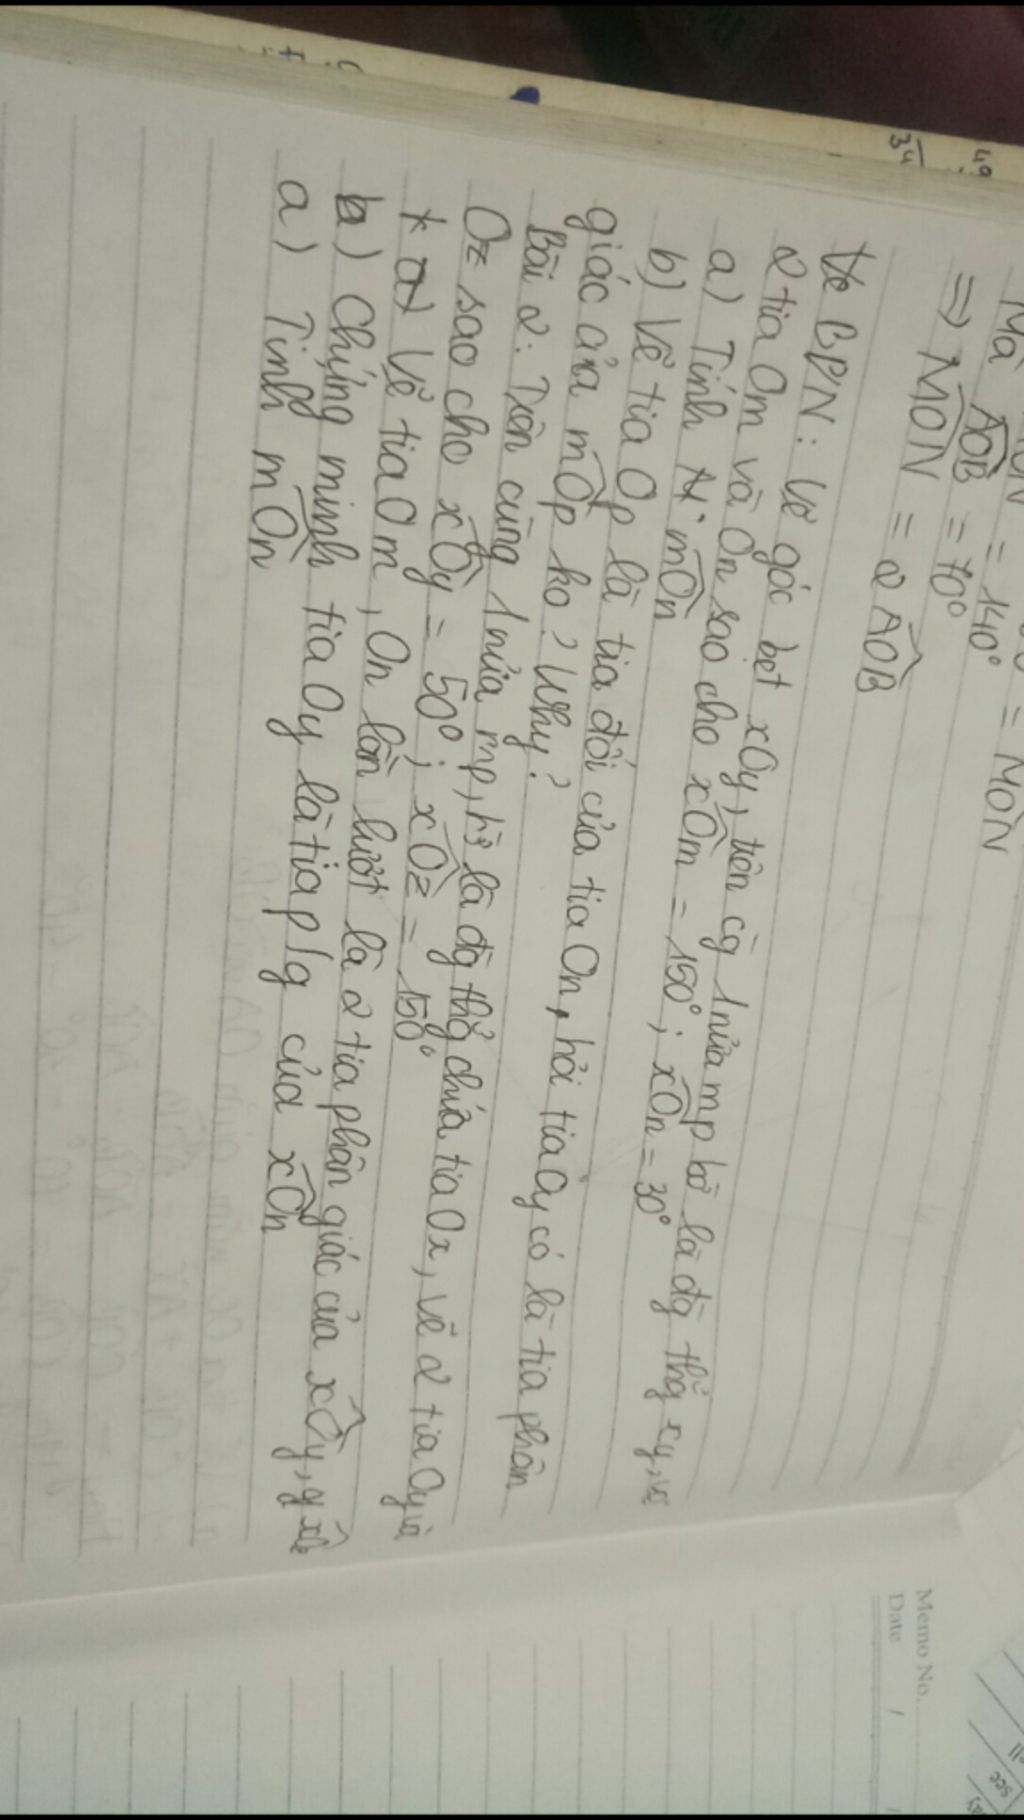 Mà AOB = 70°
= 140°
= MON
=> MON = 2 AOB
Về BVN: Vẽ góc bẹt xOy, trên cg 1 nửa mp bờ là đg thẳg xy, vẽ
2 tia Om và On sao cho xOm = 150°; xOn = 30°
a) Tính mOn
b) Vẽ tia Op là tia đối của tia On, hỏi tia Oy có là tia phân
giác của mOp ko? Why?
Bài 2: Trên cùng 1 nửa mp, bờ là đg thẳg chứa tia Ox, vẽ 2 tia Oy và
Oz sao cho xOy = 50°; xOz = 150°
* Vẽ tia Om, On lần lượt là 2 tia phân giác của xOy, yOz
b) Chứng minh tia Oy là tia p/g của xOn
a) Tính mOn
Memo No.
Date / /
49
34